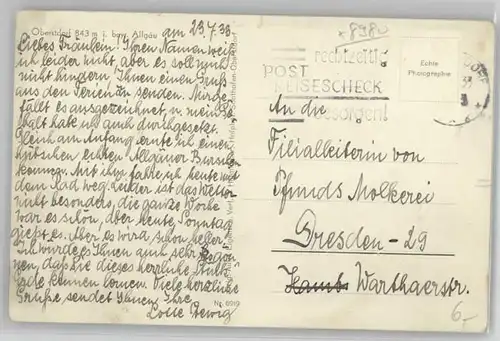 Oberstdorf 843 m i. bay. Allgäu
am 23.7.39
Liebes Fräulein! Ihren Namen weiß
ich leider nicht aber es soll mich
nicht hindern, Ihnen einen Gruß
aus den Ferien zu senden. Mir ge-
fällt es ausgezeichnet u. mein
hat sich auch durchgesetzt.
Gleich am Anfang lernte ich einen
hübschen echten Allgäuer Burschen
kennen. Mit ihm fahre ich heute mit
dem Rad weg. Leider ist das Wetter
nicht besonders, die ganze Woche
war es schön, aber heute Sonntag
gießt es. Aber es wird schon heller.
Ich würde es Ihnen auch sehr
gönnen, daß Sie dieses herrliche
kennen lernen. Viele herzliche
Grüße sendet Ihnen, Ihre
Lotte
Nr. 6919
+8980
rechtzeitig
POST
REISESCHECK
besorgen!
Echte
Photographie
An die
Filialleiterin von
Pfunds Molkerei
Dresden-29
Warthaerstr.
6,-